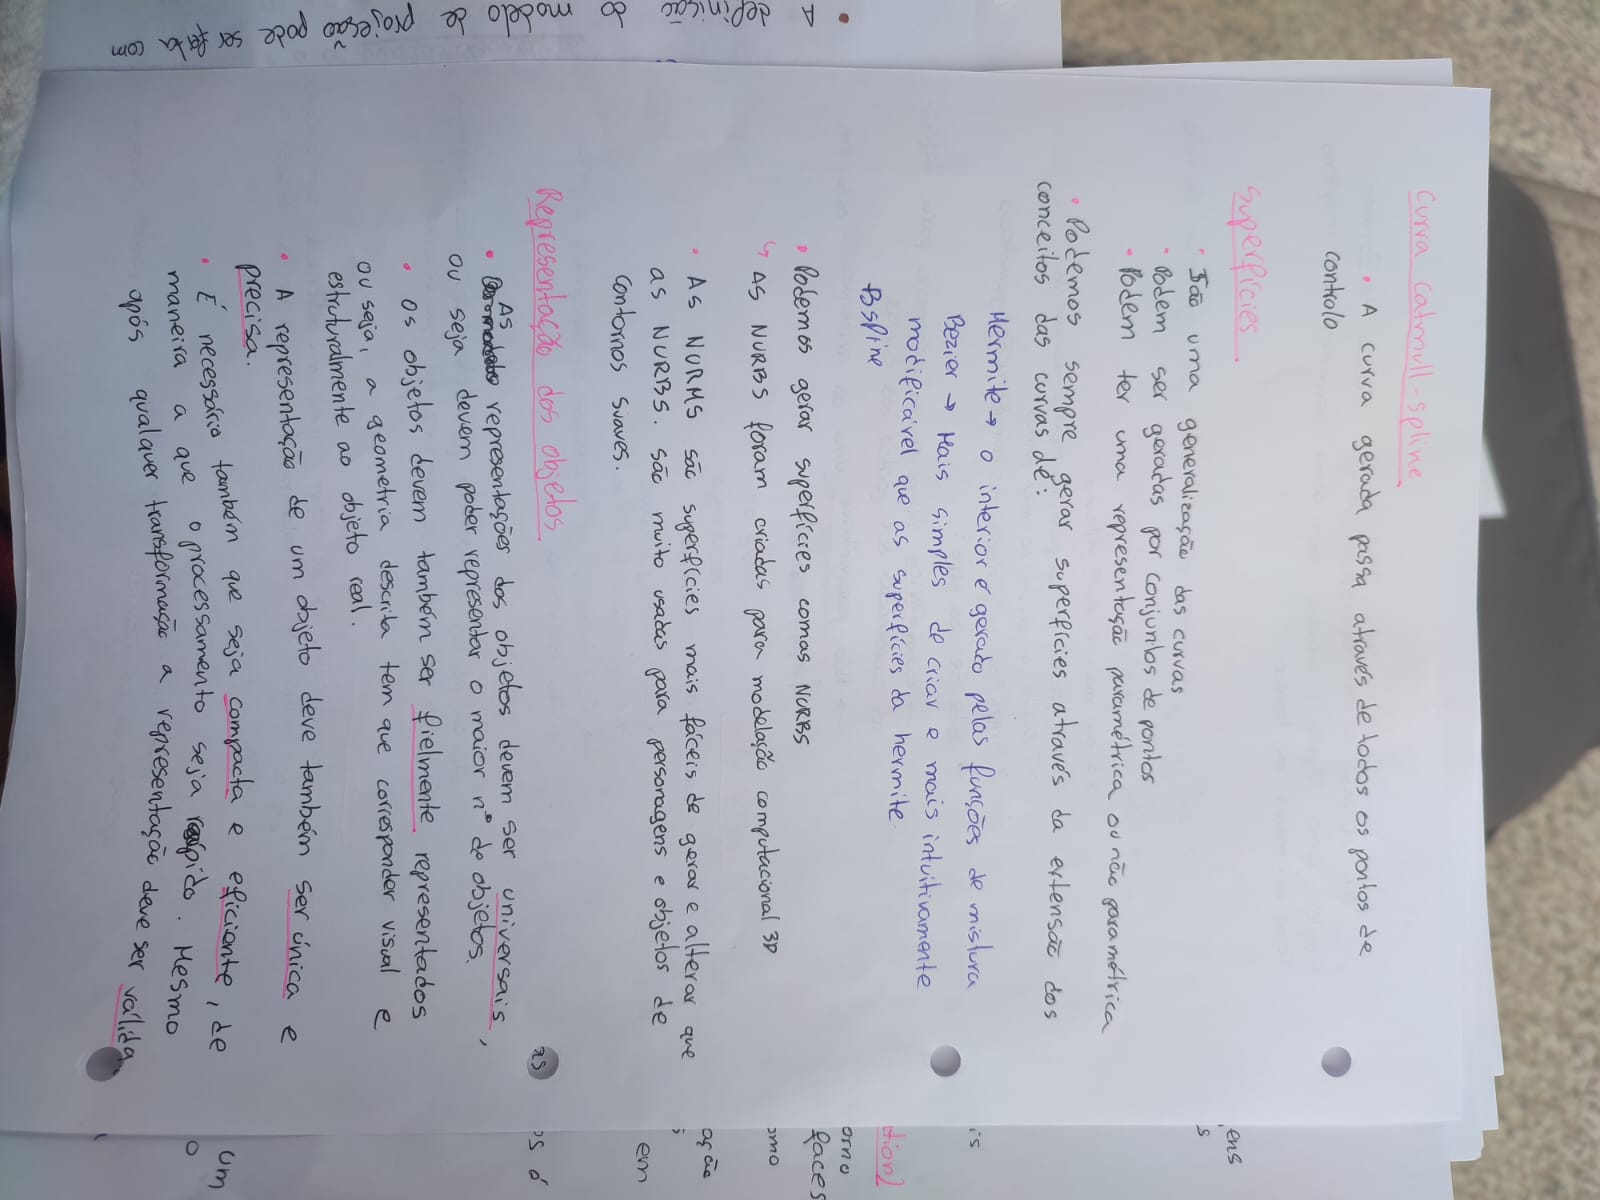 Curva Catmull-spline
• A curva gerada passa através de todos os pontos de
controlo
Superfícies
• São uma generalização das curvas
• Podem ser geradas por conjuntos de pontos
• Podem ter uma representação paramétrica ou não paramétrica
• Podemos sempre gerar superfícies através da extensão dos
conceitos das curvas de:
Hermite → o interior é gerado pelas funções de mistura
Bezier → Mais simples de criar e mais intuitivamente
modificável que as superfícies da hermite
Bspline
• Podemos gerar superfícies comas NURBS
↳ As NURBS foram criadas para modelação computacional 3D
• As NURMS são superfícies mais fáceis de gerar e alterar que
as NURBS. São muito usadas para personagens e objetos de
contornos suaves.
Representação dos objetos
• As representações dos objetos devem ser universais,
ou seja devem poder representar o maior nº de objetos.
• Os objetos devem também ser fielmente representados
ou seja, a geometria descrita tem que corresponder visual e
estruturalmente ao objeto real.
• A representação de um objeto deve também ser única e
precisa.
• É necessário também que seja compacta e eficiente, de
maneira a que o processamento seja rápido. Mesmo
após qualquer transformação a representação deve ser válida.
• A definição do modelo de projesão pode ser feita com
ens
s
is
tion)
omo
faces
omo
ação
s
em
os é
um
o